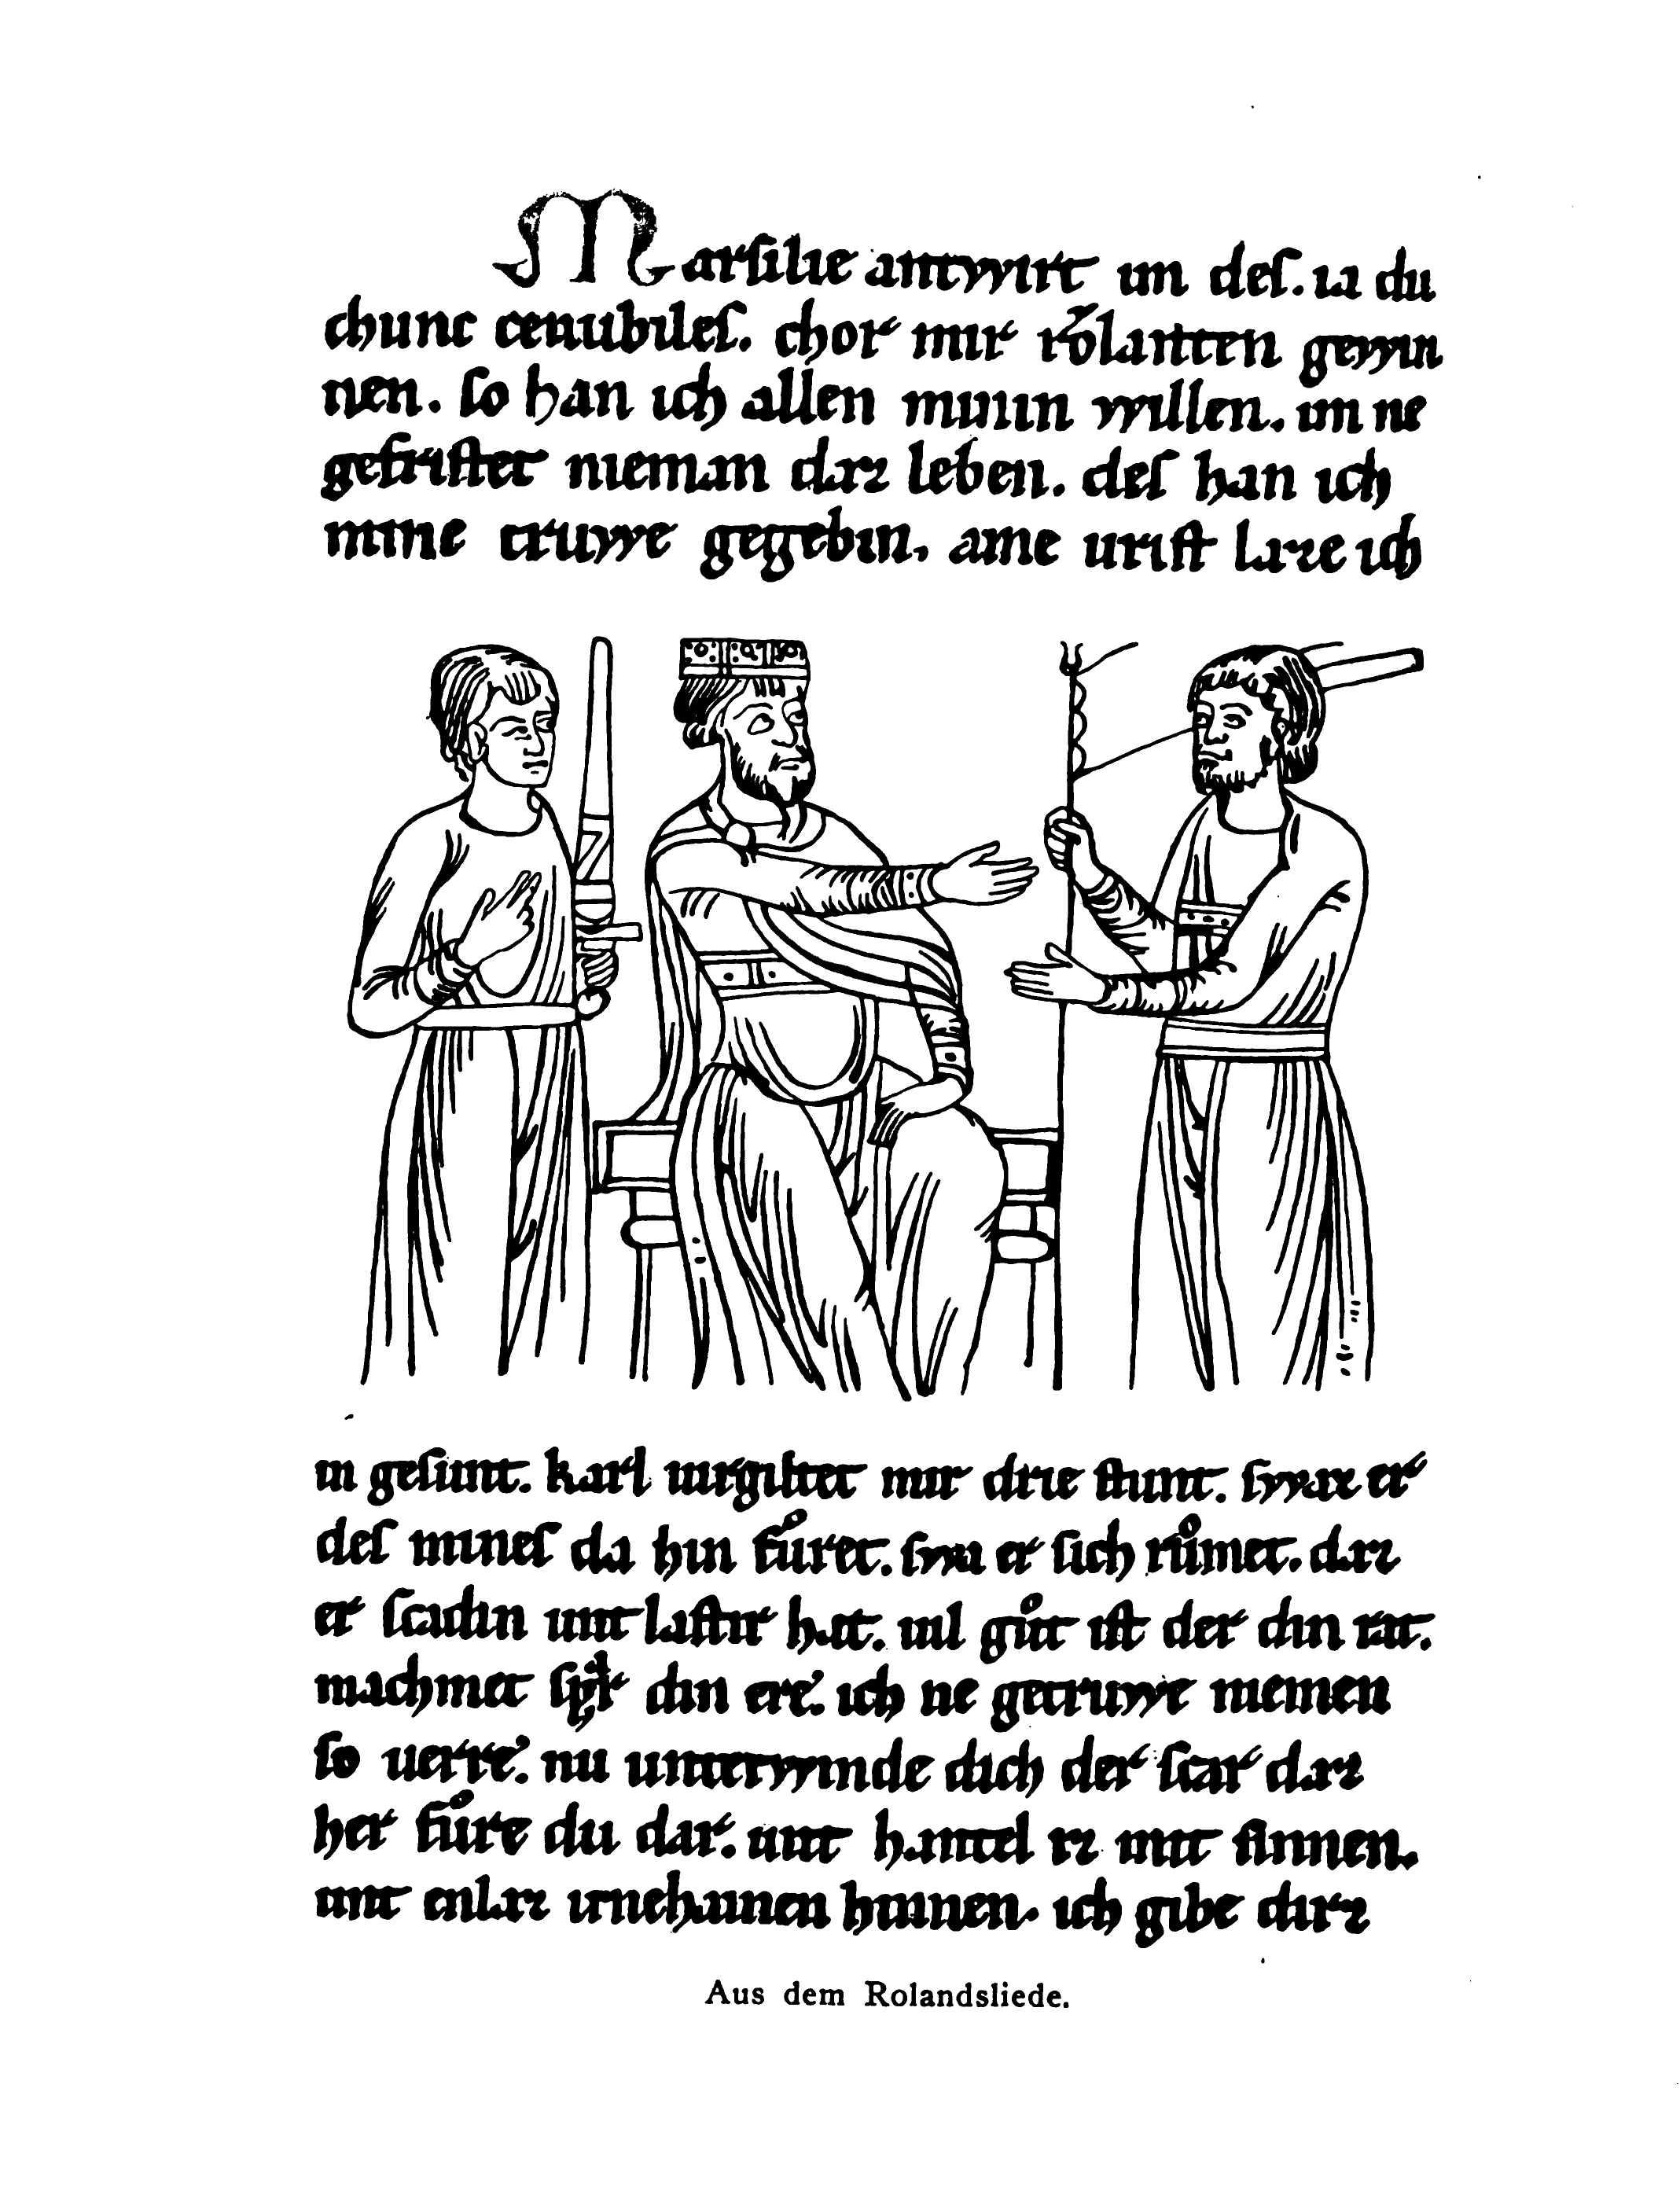 Marſilie antwirt im deſ. ia du
chunc cenubileſ. chor mir rͦolantten gewin
nen. ſo han ich allen minin willen. im ne
gefriſtet nieman daz leben. deſ han ich
mine truwe gegebin. aine uriſt laze ich
in geſunt. karl uirgiltet mir drie ſtunt. ſwaz er
deſ mineſ da hin fuͦret. ſwa er ſich ruͦmet. daz
er ſcadin unt laſtir hat. uil guͦt iſt der din rat.
machmet din ere. ich ne getruwe niemen
ſo uerre. nu unterwinde dich der ſcar daz
her fuͦre du dar. unt hantel iz mit ſinnen.
unt enlaz irnehainen hinnen. ich gibe dirz
Aus dem Rolandsliede.